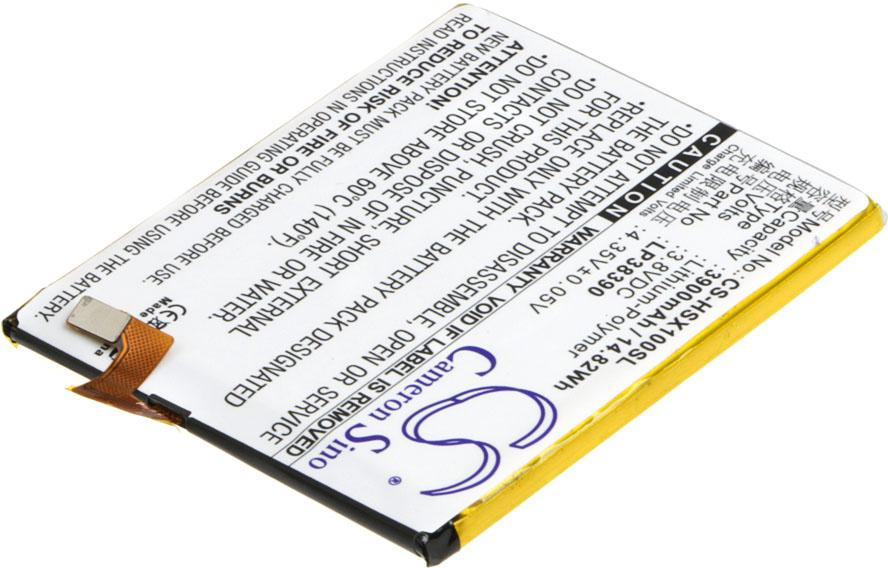 型号Model No.: CS-HSX100SL
容量Capacity: 3900mAh/14.82Wh
规格Type: Lithium-Polymer
电压Volts: 3.8VDC
编号Part No.: LP38390
充电限制电压 4.35V±0.05V
Charge Limited Volts
CAUTION! WARRANTY VOID IF LABEL IS REMOVED
•DO NOT ATTEMPT TO DISASSEMBLE, OPEN OR SERVICE
THE BATTERY PACK.
•REPLACE ONLY WITH THE BATTERY PACK DESIGNATED
FOR THIS PRODUCT.
•DO NOT CRUSH, PUNCTURE, SHORT EXTERNAL
CONTACTS OR DISPOSE OF IN FIRE OR WATER.
•DO NOT STORE ABOVE 60°C (140°F).
ATTENTION:
NEW BATTERY PACK MUST BE FULLY CHARGED BEFORE USE.
TO REDUCE RISK OF FIRE OR BURNS
READ INSTRUCTIONS IN OPERATING GUIDE BEFORE USING THE BATTERY.
CS
Cameron Sino®
CE
Made